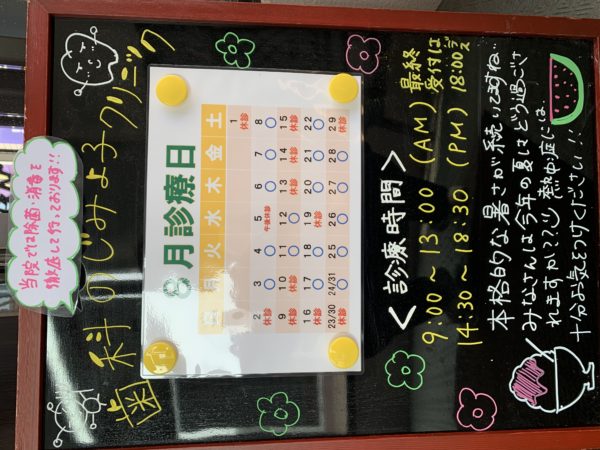 当院では除菌・消毒を
徹底して行っております!!
歯科のじみよ子クリニック
8月診療日
日 月 火 水 木 金 土
1
休診
2 3 4 5 6 7 8
休診 ○ ○ 午後休診 休診 ○ ○
9 10 11 12 13 14 15
休診 休診 休診 休診
16 17 18 19 20 21 22
休診 ○ ○ ○ ○
23/30 24/31 25 26 27 28 29
休診 ○ ○ ○ ○ ○ ○
<診療時間>
9:00~13:00(AM) 最終
受付は
14:30~18:30(PM) 18:00デス
本格的な暑さが続いてますね..
みなさんは今年の夏はどう過ごさ
れますか??熱中症には、
十分お気をつけください!!